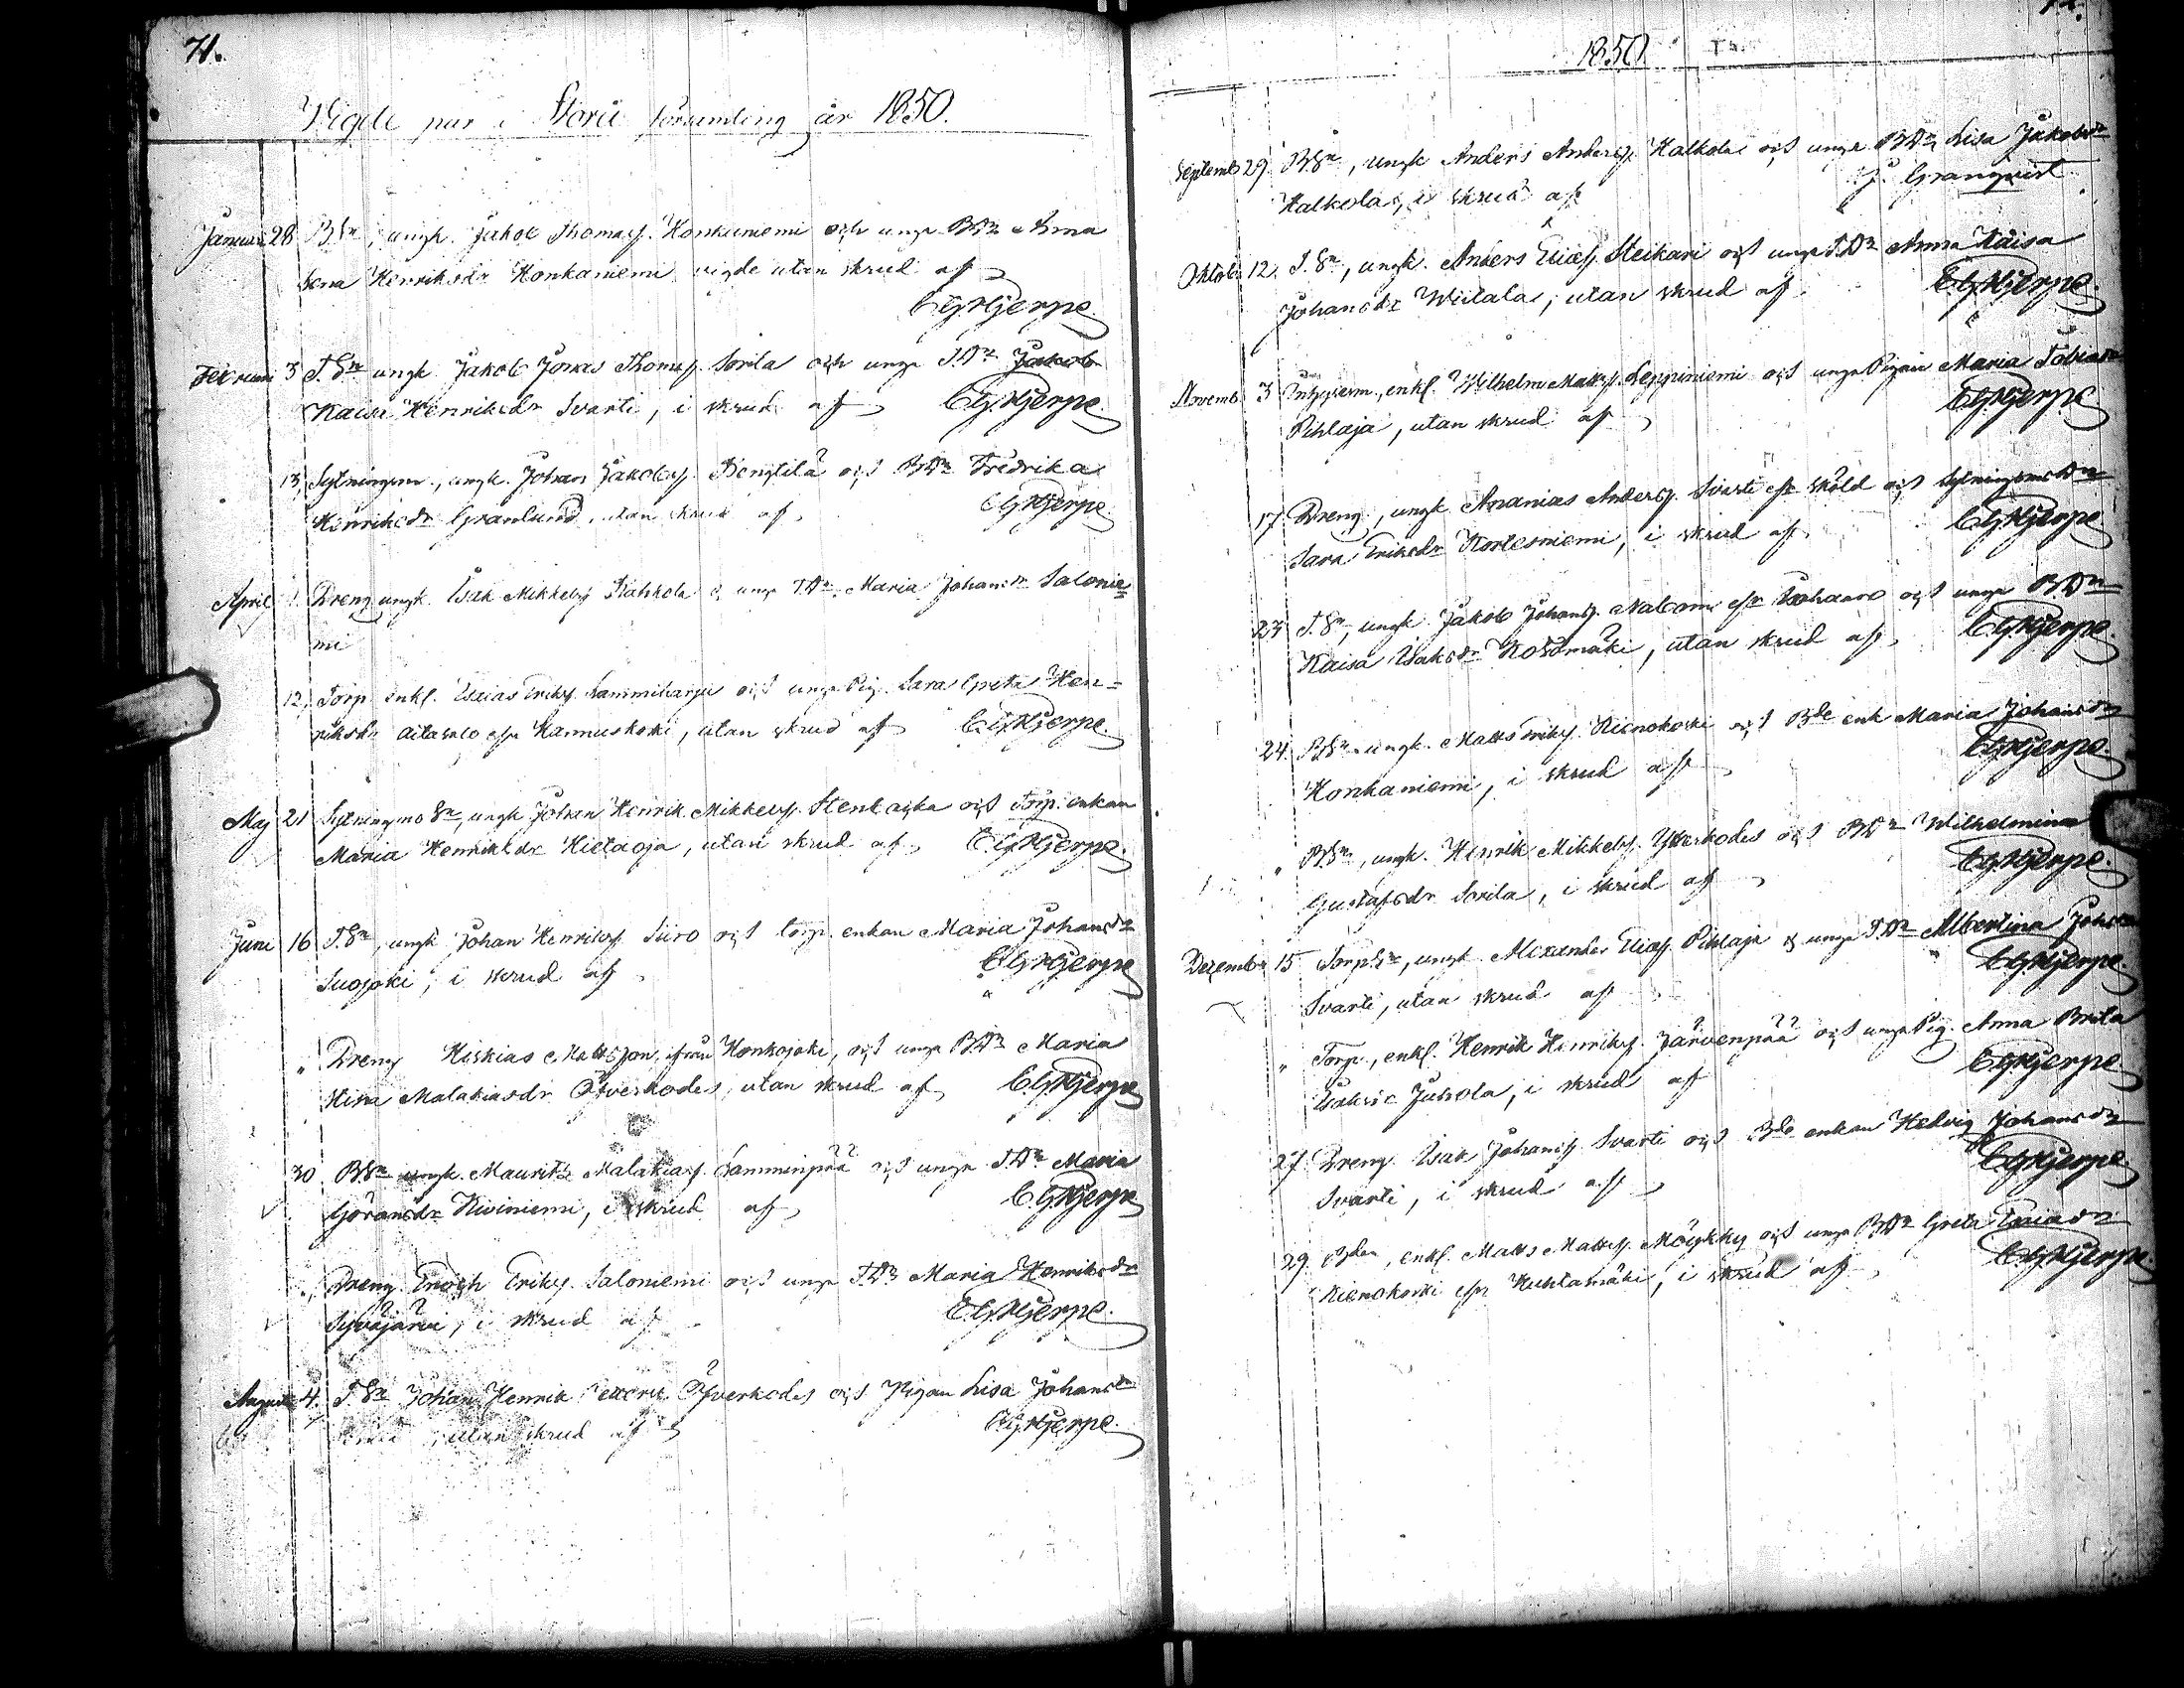 71.
Vigde par i Storå församling år 1850.
Januari 28 BSn, ungk. Jakob Thomass. Honkaniemi och unga BDr Anna
Lena Henriksdr Honkaniemi vigde utan skrud af
CGHjerpe.
Februari 3 T.Sn ungk. Jakob Jonas Thomass. Sorila och unga T.Dr Jakob
Kaisa Henriksdr Svarti, i skrud af CGHjerpe.
13, Sytningsm., ungk. Johan Jakobss. Bengtilä och BDr Fredrika
Henriksdr Granlund, utan skrud af CGHjerpe.
April 1. Dreng ungk. Isak Mikkelss. Kahkola o. unga T.Dr. Maria Johansdr Salonie=
mi
12, Torp. enkl. Esaias Erikss. Lammiharju och unga Pig. Sara Greta Hen=
riksdr Aitasalo efr Hannuskoski, utan skrud af CGHjerpe.
Maj 21 Sytningms Sn, ungk Johan Henrik Mikkelss. Stenbacka och Torp. enkan
Maria Henriksdr Hietaoja, utan skrud af CGHjerpe.
Juni 16 T.Sn, ungk Johan Henrikss. Siiro och torp. enkan Maria Johansdr
Suojoki, i skrud af CGHjerpe
" Dreng Hiskias Mattsson, ifrån Honkajoki, och unga BDr Maria
Stina Malakiasdr Öfverkodes, utan skrud af CGHjerpe
30. BSn ungk. Maurits Malakiass. Lamminpää och unga T.Dr Maria
Göransdr Kiviniemi, i skrud af CGHjerpe
" Dreng Enoch Erikss. Saloniemi och unga T.Dr Maria Henriksdr
Syväjärvi, i skrud af CGHjerpe.
Augusti 4. T.Sn Johan Henrik Öfverkodes och Pigan Lisa Johansdr
, utan skrud af CGHjerpe.
72.
1850
Septemb 29. BSn, ungk Anders Anderss. Halkola och unga BDr Lisa Jakobsdr
Halkola, i skrud af J. Granqvist.
Oktob. 12. T.Sn, ungk. Anders Eliass. Steikari och unga T.Dr Anna Kaisa
Johansdr Wiitala, utan skrud af CGHjerpe.
Novemb. 3 enkl. Wilhelm Matss. Leppiniemi och unga Pigan Maria Tobiasdr
Pihlaja, utan skrud af CGHjerpe
17. Dreng, ungk Ananias Anderss. Svarti efr Sköld och SytningsmsDr
Sara Eriksdr Kortesniemi, i skrud af CGHjerpe
23 T.Sn, ungk. Jakob Johanss. Nabom efr och unga BDr
Kaisa Isaksdr Koskimäki, utan skrud af CGHjerpe.
24. BSn ungk. Matts Erikss. Rienokoski och Bde enk Maria Johansdr
Honkaniemi, i skrud af CGHjerpe.
" BSn, ungk. Henrik Mikkelss. Ytterkodes och BDr Wilhelmina
Gustafsdr Sorila, i skrud af CGHjerpe.
Dezember 15 TorpSn, ungk. Alexander Eliass. Pihlaja o. unga T.Dr Albertina Johansdr
Svarti, utan skrud af CGHjerpe.
" Torp., enkl. Henrik Henrikss. Järvenpää och unga Pig. Anna Brita
Isaksdr Juhola, i skrud af CGHjerpe
27. Dreng. Isak Johanss. Svarti och Bde enkan Hedvig Johansdr
Svarti, i skrud af CGHjerpe
29. Bden, enkl. Matts Mattss. Möykky och unga BDr Greta Esaiasdr
Rienokoski efr Huhtamäki, i skrud af CGHjerpe.